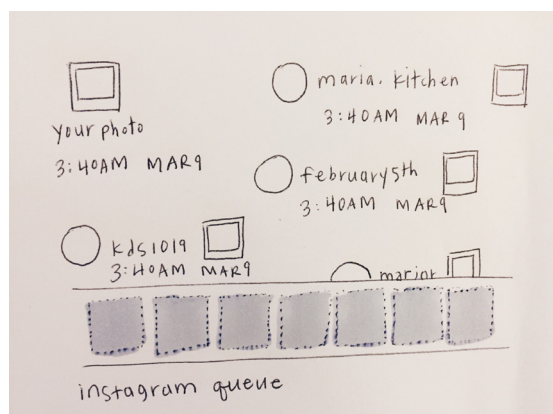 your photo
3:40AM MAR9
maria.kitchen
3:40AM MAR 9
february5th
3:40AM MAR9
kds1019
3:40AM MAR9
instagram queue